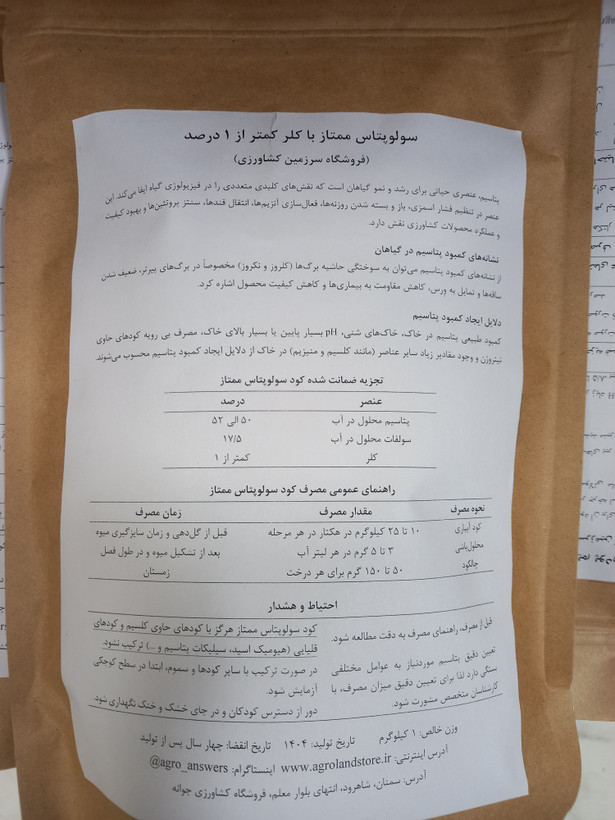 سولوپتاس ممتاز با کلر کمتر از ۱ درصد
(فروشگاه سرزمین کشاورزی)
پتاسیم، عنصری حیاتی برای رشد و نمو گیاهان است که نقش‌های کلیدی متعددی را در فیزیولوژی گیاه ایفا می‌کند. این
عنصر در تنظیم فشار اسمزی، باز و بسته شدن روزنه‌ها، فعال‌سازی آنزیم‌ها، انتقال قندها، سنتز پروتئین‌ها و بهبود کیفیت
و عملکرد محصولات کشاورزی نقش دارد.
نشانه‌های کمبود پتاسیم در گیاهان
از نشانه‌های کمبود پتاسیم می‌توان به سوختگی حاشیه برگ‌ها (کلروز و نکروز) مخصوصاً در برگ‌های پیرتر، ضعیف شدن
ساقه‌ها و تمایل به ورس، کاهش مقاومت به بیماری‌ها و کاهش کیفیت محصول اشاره کرد.
دلایل ایجاد کمبود پتاسیم
کمبود طبیعی پتاسیم در خاک، خاک‌های شنی، pH بسیار پایین یا بسیار بالای خاک، مصرف بی رویه کودهای حاوی
نیتروژن و وجود مقادیر زیاد سایر عناصر (مانند کلسیم و منیزیم) در خاک از دلایل ایجاد کمبود پتاسیم محسوب می‌شوند.
تجزیه ضمانت شده کود سولوپتاس ممتاز
عنصر درصد
پتاسیم محلول در آب ۵۰ الی ۵۲
سولفات محلول در آب ۱۷/۵
کلر کمتر از ۱
راهنمای عمومی مصرف کود سولوپتاس ممتاز
نحوه مصرف مقدار مصرف زمان مصرف
کود آبیاری ۱۰ تا ۲۵ کیلوگرم در هکتار در هر مرحله قبل از گل‌دهی و زمان سایزگیری میوه
محلول‌پاشی ۳ تا ۵ گرم در هر لیتر آب بعد از تشکیل میوه و در طول فصل
چالکود ۵۰ تا ۱۵۰ گرم برای هر درخت زمستان
احتیاط و هشدار
قبل از مصرف، راهنمای مصرف به دقت مطالعه شود.
تعیین دقیق پتاسیم موردنیاز به عوامل مختلفی
بستگی دارد لذا برای تعیین دقیق میزان مصرف، با
کارشناسان متخصص مشورت شود.
کود سولوپتاس ممتاز هرگز با کودهای حاوی کلسیم و کودهای
قلیایی (هیومیک اسید، سیلیکات پتاسیم و ...) ترکیب نشود.
در صورت ترکیب با سایر کودها و سموم، ابتدا در سطح کوچکی
آزمایش شود.
دور از دسترس کودکان و در جای خشک و خنک نگهداری شود.
وزن خالص: ۱ کیلوگرم تاریخ تولید: ۱۴۰۴ تاریخ انقضا: چهار سال پس از تولید
آدرس اینترنتی: www.agrolandstore.ir اینستاگرام: agro_answers@
آدرس: سمنان، شاهرود، انتهای بلوار معلم، فروشگاه کشاورزی جوانه